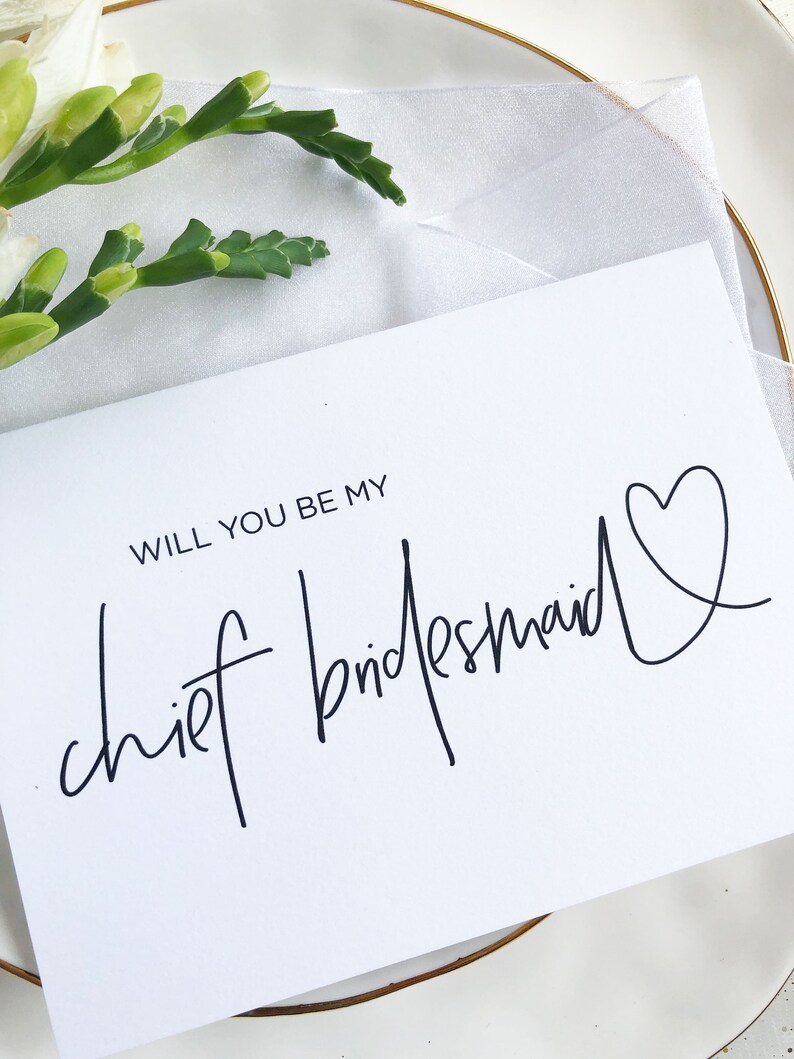 WILL YOU BE MY
chief bridesmaid